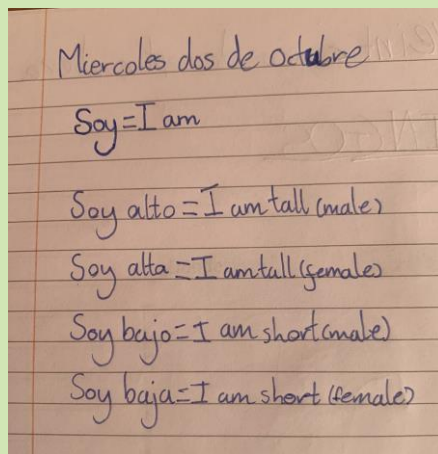 Miercoles dos de octubre
Soy=I am
Soy alto=I am tall (male)
Soy alta=I am tall (female)
Soy bajo=I am short (male)
Soy baja=I am short (female)